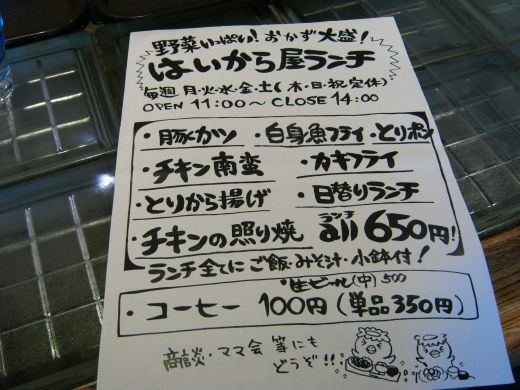 野菜いっぱい!おかず大盛!
はいから屋ランチ
毎週 月・火・水・金・土(木・日・祝定休)
OPEN 11:00〜CLOSE 14:00
・豚カツ ・白身魚フライ ・とりポン
・チキン南蛮 ・カキフライ
・とりから揚げ ・日替りランチ
・チキンの照り焼 ランチ all 650円!
ランチ全てにご飯・みそ汁・小鉢付!
・生ビール(中)500
・コーヒー 100円(単品350円)
商談・ママ会 等にも
どうぞ!!!